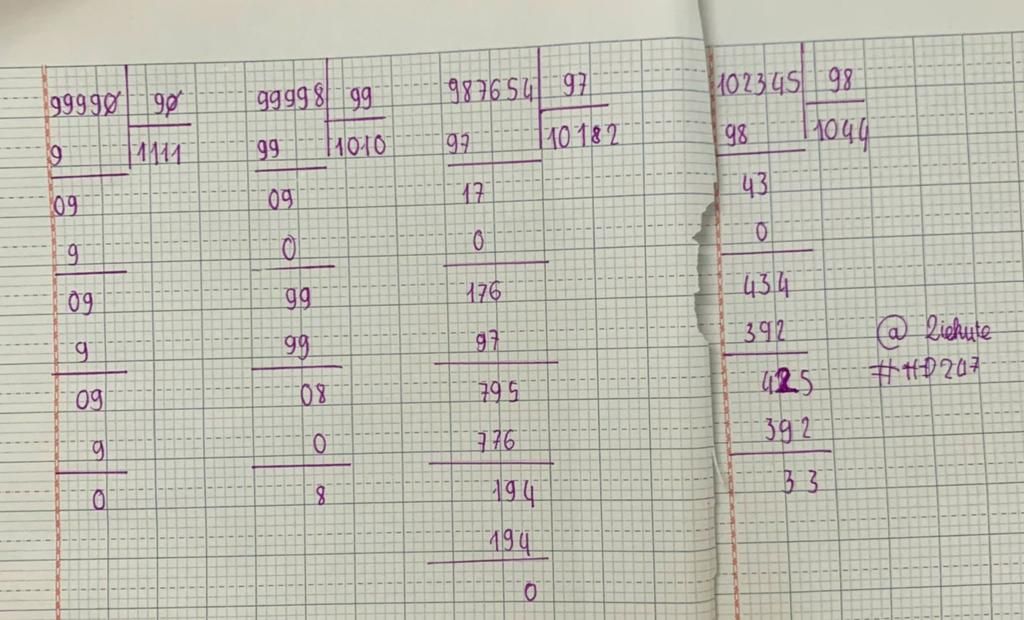 99990 90
9 1111
09
9
09
9
09
9
0
99998 99
99 1010
09
0
99
99
08
0
8
987654 97
97 10182
17
0
176
97
795
776
194
194
0
102345 98
98 1044
43
0
434
392
425
392
33
@ Ziekute
##D247